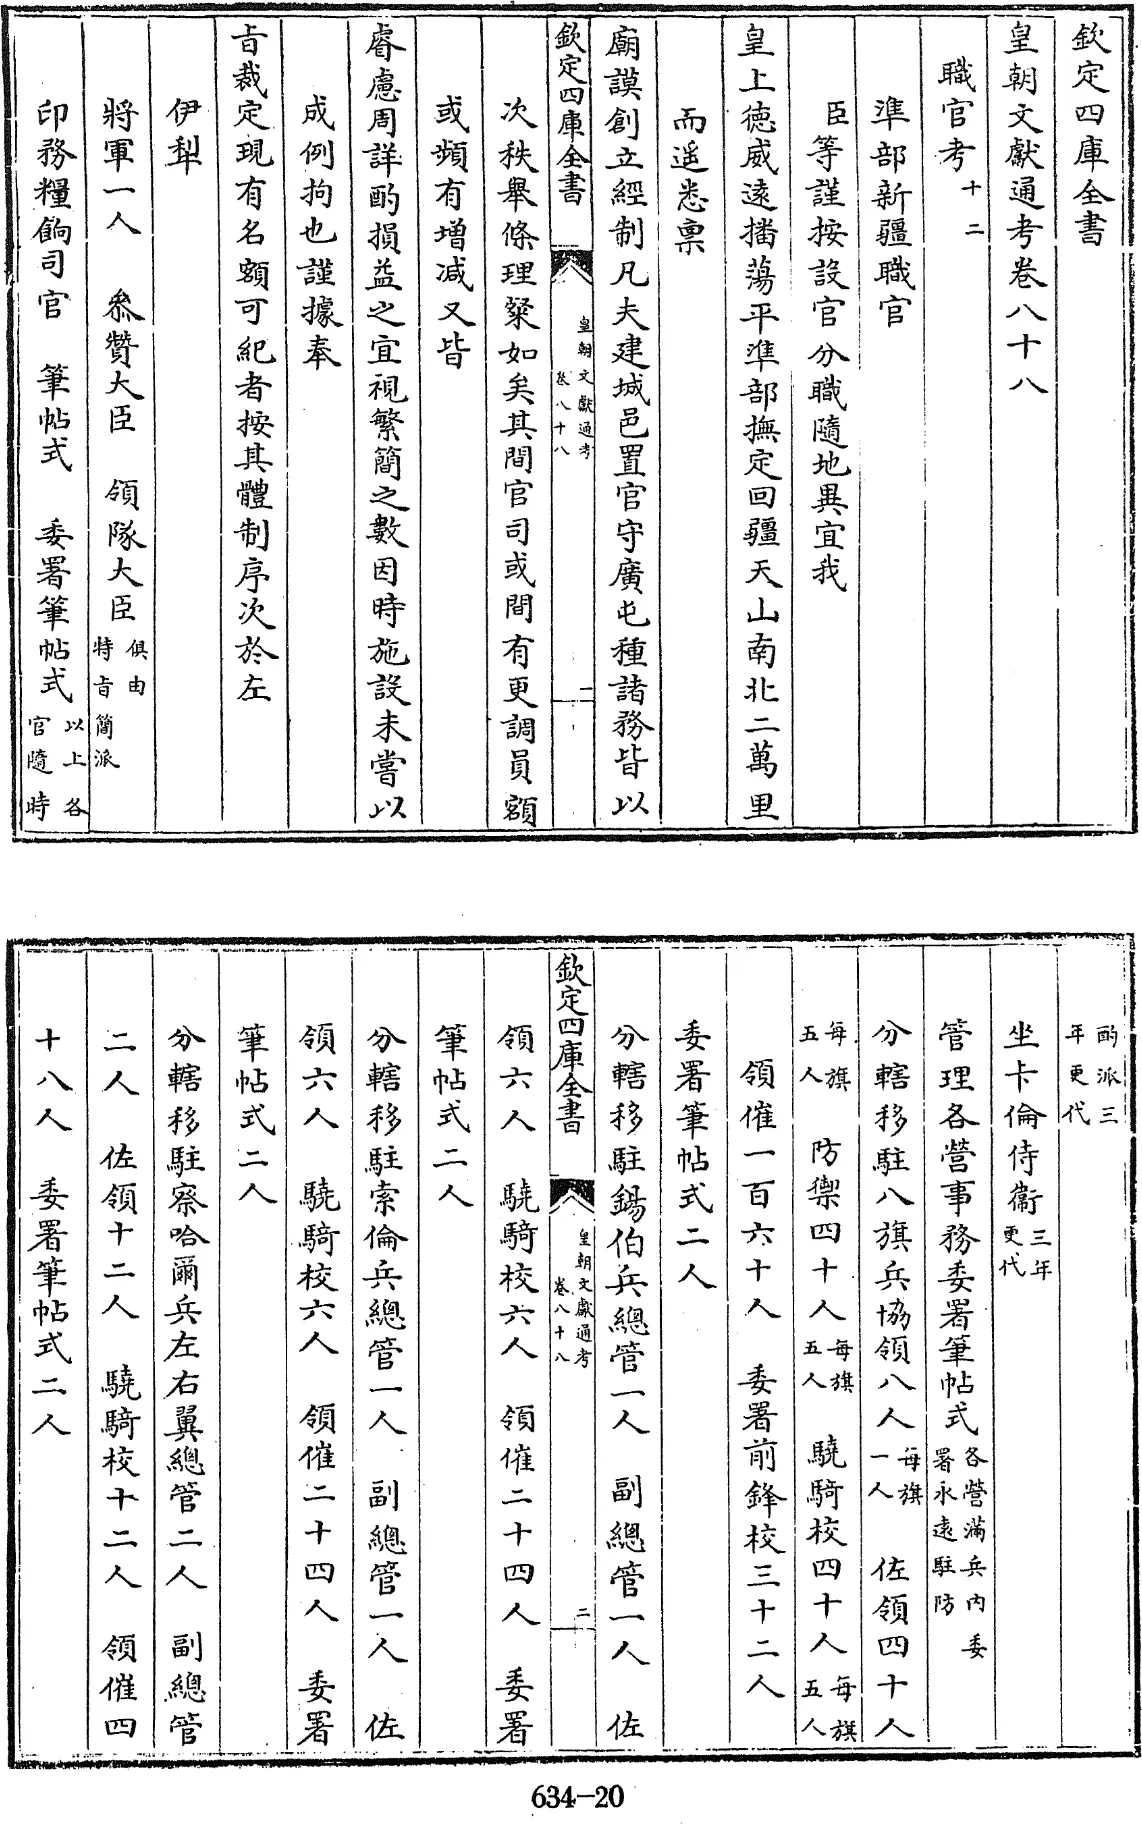 欽定四庫全書
皇朝文獻通考卷八十八
職官考十二
準部新疆職官
臣等謹按設官分職隨地異宜我
皇上德威遠播蕩平準部撫定回疆天山南北二萬里
而遥悉稟
廟謨創立經制凡夫建城邑置官守廣屯種諸務皆以
欽定四庫全書
皇朝文獻通考
卷八十八
一
次秩舉條理粲如矣其間官司或間有更調員額
或頻有增減又皆
睿慮周詳酌損益之宜視繁簡之數因時施設未嘗以
成例拘也謹據奉
旨裁定現有名額可紀者按其體制序次於左
伊犁
將軍一人 叅贊大臣 領隊大臣俱由特旨簡派
印務糧餉司官 筆帖式 委署筆帖式以上各官隨時
酌派三年更代
坐卡倫侍衞三年更代
管理各營事務委署筆帖式各營滿兵内委署永遠駐防
分轄移駐八旗兵協領八人每旗一人 佐領四十人
每旗五人 防禦四十人每旗五人 驍騎校四十人每旗五人
領催一百六十人 委署前鋒校三十二人
委署筆帖式二人
分轄移駐錫伯兵總管一人 副總管一人 佐
欽定四庫全書
皇朝文獻通考
卷八十八
二
領六人 驍騎校六人 領催二十四人 委署
筆帖式二人
分轄移駐索倫兵總管一人 副總管一人 佐
領六人 驍騎校六人 領催二十四人 委署
筆帖式二人
分轄移駐察哈爾兵左右翼總管二人 副總管
二人 佐領十二人 驍騎校十二人 領催四
十八人 委署筆帖式二人
634-20